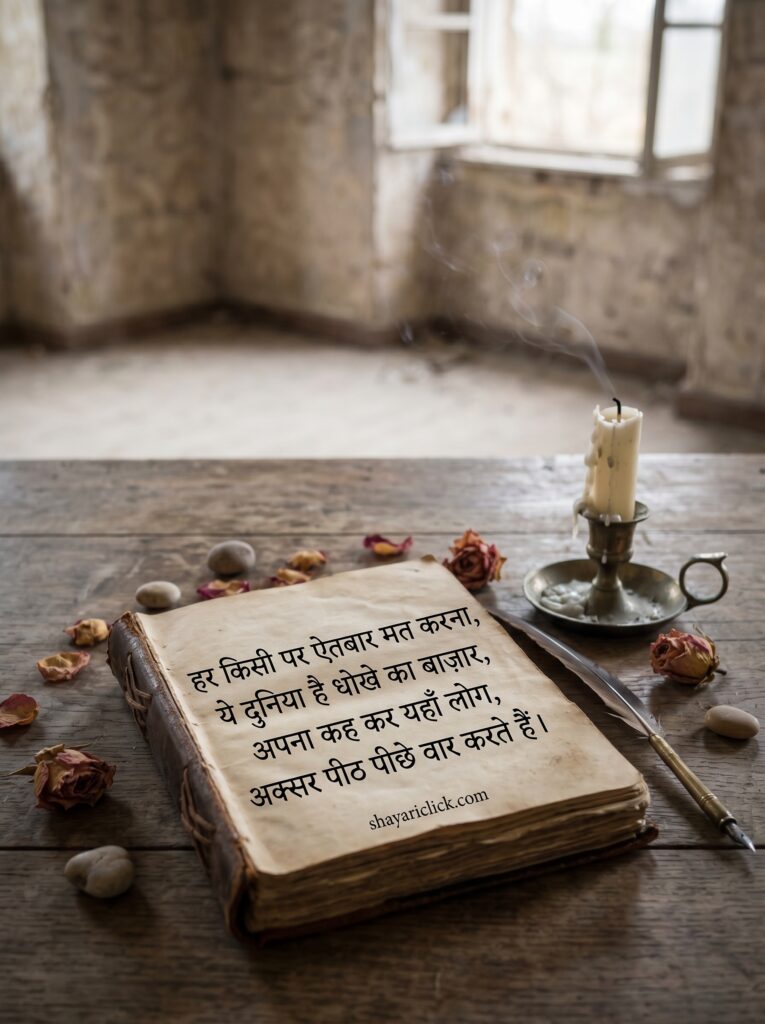 हर किसी पर ऐतबार मत करना,
ये दुनिया है धोखे का बाज़ार,
अपना कह कर यहाँ लोग,
अक्सर पीठ पीछे वार करते हैं।
shayariclick.com